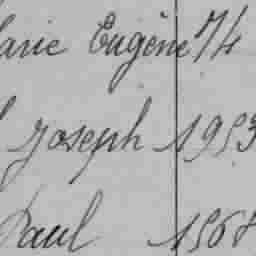 Marie Eugène 74
Joseph 1953
Paul 1968